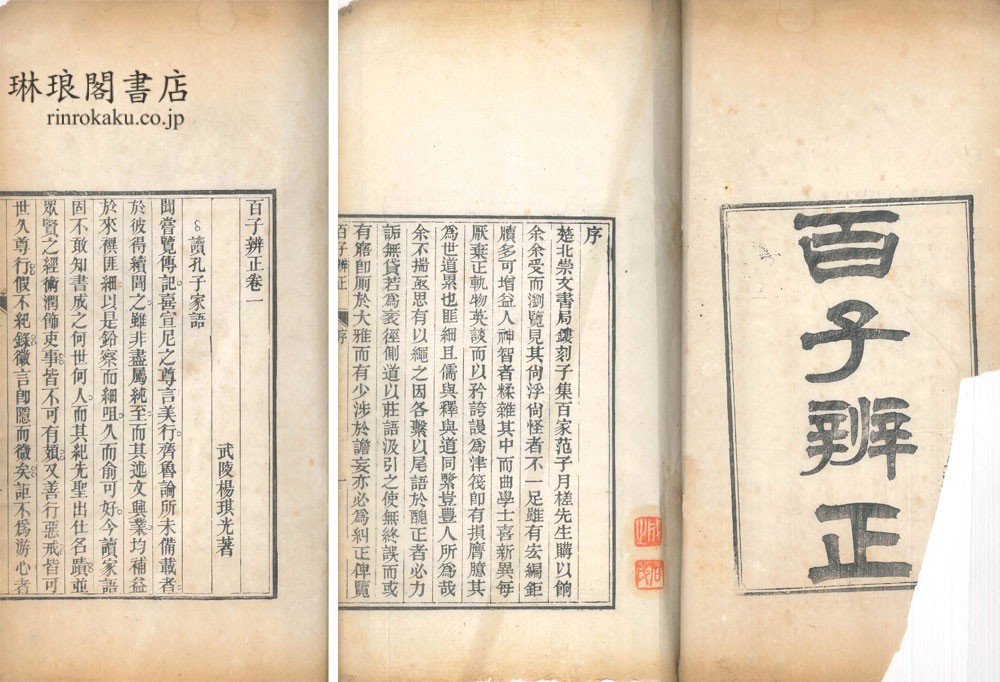 百子辨正
序
楚北崇文書局鏤刻子集百家范子月槎先生購以餉
余余受而瀏覽見其尙浮尙怪者不一足雖有宏編鉅
牘多可增益人神智者糅雜其中而曲學士喜新異每
厭棄正軌物英談而以矜誇謾爲津筏卽有損膺臆其
爲世道累也匪細且儒與釋與道同縶豈豐人所爲哉
余不揣亟思有以繩之因各繫以尾語於醜正者必力
詬無貸若爲衺徑側道以莊語汲引之使無終誤而或
有窳卽厠於大雅而有少涉於譫妄亦必爲糾正俾覽
百子辨正 序 一
琳琅閣書店
rinrokaku.co.jp
百子辨正卷一
武陵楊琪光著
讀孔子家語
閒嘗覽傳記喜宣尼之尊言美行齊魯論所未備載者
於彼得續聞之雖非盡屬純至而其述文興業均補益
於來禩匪細以是鉛察而細咀久而俞可好今讀家語
固不敢知書成之何世何人而其紀先聖出仕名蹟並
眾賢之經術潤飾吏事皆不可有纇又善行惡戒皆可
世久尊行假不紀錄徽言卽隱而微矣詎不爲游心者